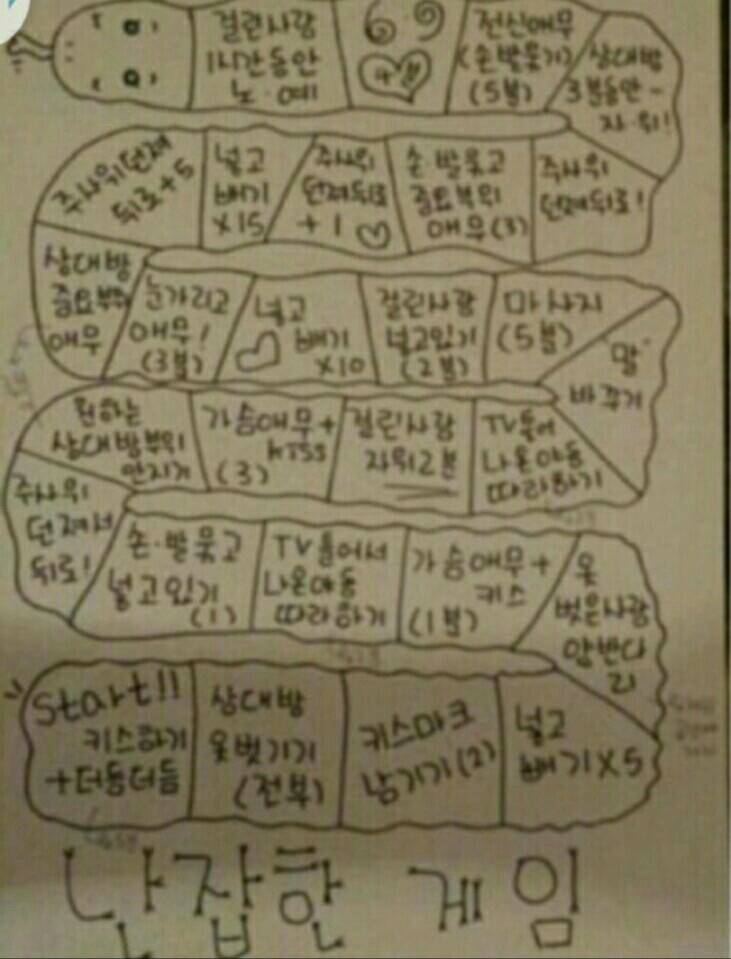 Start!!
키스하기
+더듬더듬
상대방
옷벗기기
(전부)
키스마크
남기기(2)
넣고
빼기X5
옷
벗은사람
양반다
리
가슴애무+
키스
(1분)
TV틀어서
나온야동
따라하기
손·발묶고
넣고있기
(1)
주사위
던져서
뒤로!
원하는
상대방부위
만지기
가슴애무+
kiss
(3)
걸린사람
자위2분
TV틀어
나온야동
따라하기
"말"
바꾸기
마사지
(5분)
걸린사람
넣고있기
(2분)
넣고
빼기
X10
눈가리고
애무!
(3분)
상대방
중요부위
애무
주사위던져
뒤로+5
넣고
빼기
X15
주사위
던져뒤로
+1
손·발묶고
중요부위
애무(3)
주사위
던져뒤로!
상대방
3분동안-
자·위!
전신애무
(손발묶기)
(5분)
69
걸린사람
1시간동안
노·예
난잡한 게임